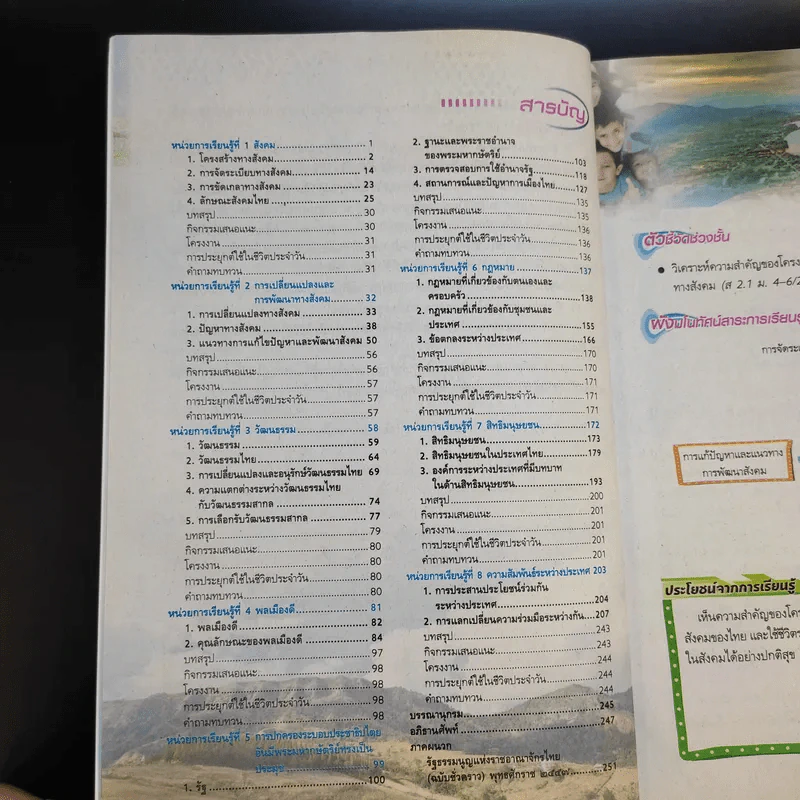 สารบัญ
หน่วยการเรียนรู้ที่ 1 สังคม 1
1. โครงสร้างทางสังคม 2
2. การจัดระเบียบทางสังคม 14
3. การขัดเกลาทางสังคม 23
4. ลักษณะสังคมไทย 25
บทสรุป 30
กิจกรรมเสนอแนะ 30
โครงงาน 31
การประยุกต์ใช้ในชีวิตประจำวัน 31
คำถามทบทวน 31
หน่วยการเรียนรู้ที่ 2 การเปลี่ยนแปลงและ
การพัฒนาทางสังคม 32
1. การเปลี่ยนแปลงทางสังคม 33
2. ปัญหาทางสังคม 38
3. แนวทางการแก้ไขปัญหาและพัฒนาสังคม 50
บทสรุป 56
กิจกรรมเสนอแนะ 56
โครงงาน 57
การประยุกต์ใช้ในชีวิตประจำวัน 57
คำถามทบทวน 57
หน่วยการเรียนรู้ที่ 3 วัฒนธรรม 58
1. วัฒนธรรม 59
2. วัฒนธรรมไทย 64
3. การเปลี่ยนแปลงและอนุรักษ์วัฒนธรรมไทย 69
4. ความแตกต่างระหว่างวัฒนธรรมไทย
กับวัฒนธรรมสากล 74
5. การเลือกรับวัฒนธรรมสากล 77
บทสรุป 79
กิจกรรมเสนอแนะ 80
โครงงาน 80
การประยุกต์ใช้ในชีวิตประจำวัน 80
คำถามทบทวน 80
หน่วยการเรียนรู้ที่ 4 พลเมืองดี 81
1. พลเมืองดี 82
2. คุณลักษณะของพลเมืองดี 84
บทสรุป 97
กิจกรรมเสนอแนะ 98
โครงงาน 98
การประยุกต์ใช้ในชีวิตประจำวัน 98
คำถามทบทวน 98
หน่วยการเรียนรู้ที่ 5 การปกครองระบอบประชาธิปไตย
อันมีพระมหากษัตริย์ทรงเป็น
ประมุข 99
1. รัฐ 100
2. ฐานะและพระราชอำนาจ
ของพระมหากษัตริย์ 103
3. การตรวจสอบการใช้อำนาจรัฐ 118
4. สถานการณ์และปัญหาการเมืองไทย 127
บทสรุป 135
กิจกรรมเสนอแนะ 135
โครงงาน 136
การประยุกต์ใช้ในชีวิตประจำวัน 136
คำถามทบทวน 136
หน่วยการเรียนรู้ที่ 6 กฎหมาย 137
1. กฎหมายที่เกี่ยวข้องกับตนเองและ
ครอบครัว 138
2. กฎหมายที่เกี่ยวข้องกับชุมชนและ
ประเทศ 155
3. ข้อตกลงระหว่างประเทศ 166
บทสรุป 170
กิจกรรมเสนอแนะ 170
โครงงาน 171
การประยุกต์ใช้ในชีวิตประจำวัน 171
คำถามทบทวน 171
หน่วยการเรียนรู้ที่ 7 สิทธิมนุษยชน 172
1. สิทธิมนุษยชน 173
2. สิทธิมนุษยชนในประเทศไทย 179
3. องค์การระหว่างประเทศที่มีบทบาท
ในด้านสิทธิมนุษยชน 193
บทสรุป 200
กิจกรรมเสนอแนะ 201
โครงงาน 201
การประยุกต์ใช้ในชีวิตประจำวัน 201
คำถามทบทวน 201
หน่วยการเรียนรู้ที่ 8 ความสัมพันธ์ระหว่างประเทศ 203
1. การประสานประโยชน์ร่วมกัน
ระหว่างประเทศ 204
2. การแลกเปลี่ยนความร่วมมือระหว่างกัน 207
บทสรุป 243
กิจกรรมเสนอแนะ 243
โครงงาน 244
การประยุกต์ใช้ในชีวิตประจำวัน 244
คำถามทบทวน 244
บรรณานุกรม 245
อภิธานศัพท์ 247
ภาคผนวก
รัฐธรรมนูญแห่งราชอาณาจักรไทย
(ฉบับชั่วคราว) พุทธศักราช ๒๕๕๗ 251
ตัวชี้วัดช่วงชั้น
• วิเคราะห์ความสำคัญของโครง
ทางสังคม (ส 2.1 ม. 4-6/2
ผังมโนทัศน์สาระการเรียนรู้
การจัดระเ
การแก้ปัญหาและแนวทาง
การพัฒนาสังคม
ประโยชน์จากการเรียนรู้
เห็นความสำคัญของโคร
สังคมของไทย และใช้ชีวิต
ในสังคมได้อย่างปกติสุข